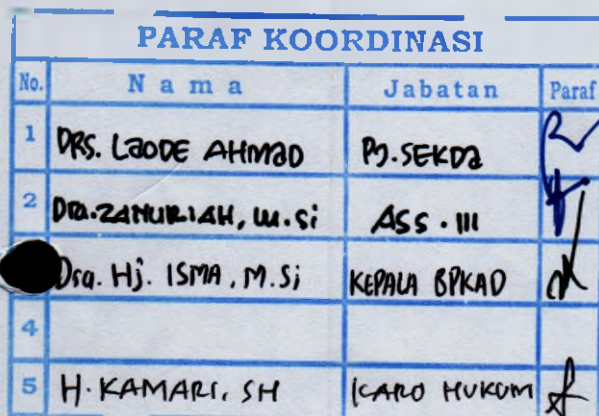 PARAF KOORDINASI
No. Nama Jabatan Paraf
1 DRS. LAODE AHMAD PJ. SEKDA
2 Dra. ZANURIAH, M.Si ASS. III
Dra. Hj. ISMA, M.Si KEPALA BPKAD
4
5 H. KAMARI, SH KARO HUKUM